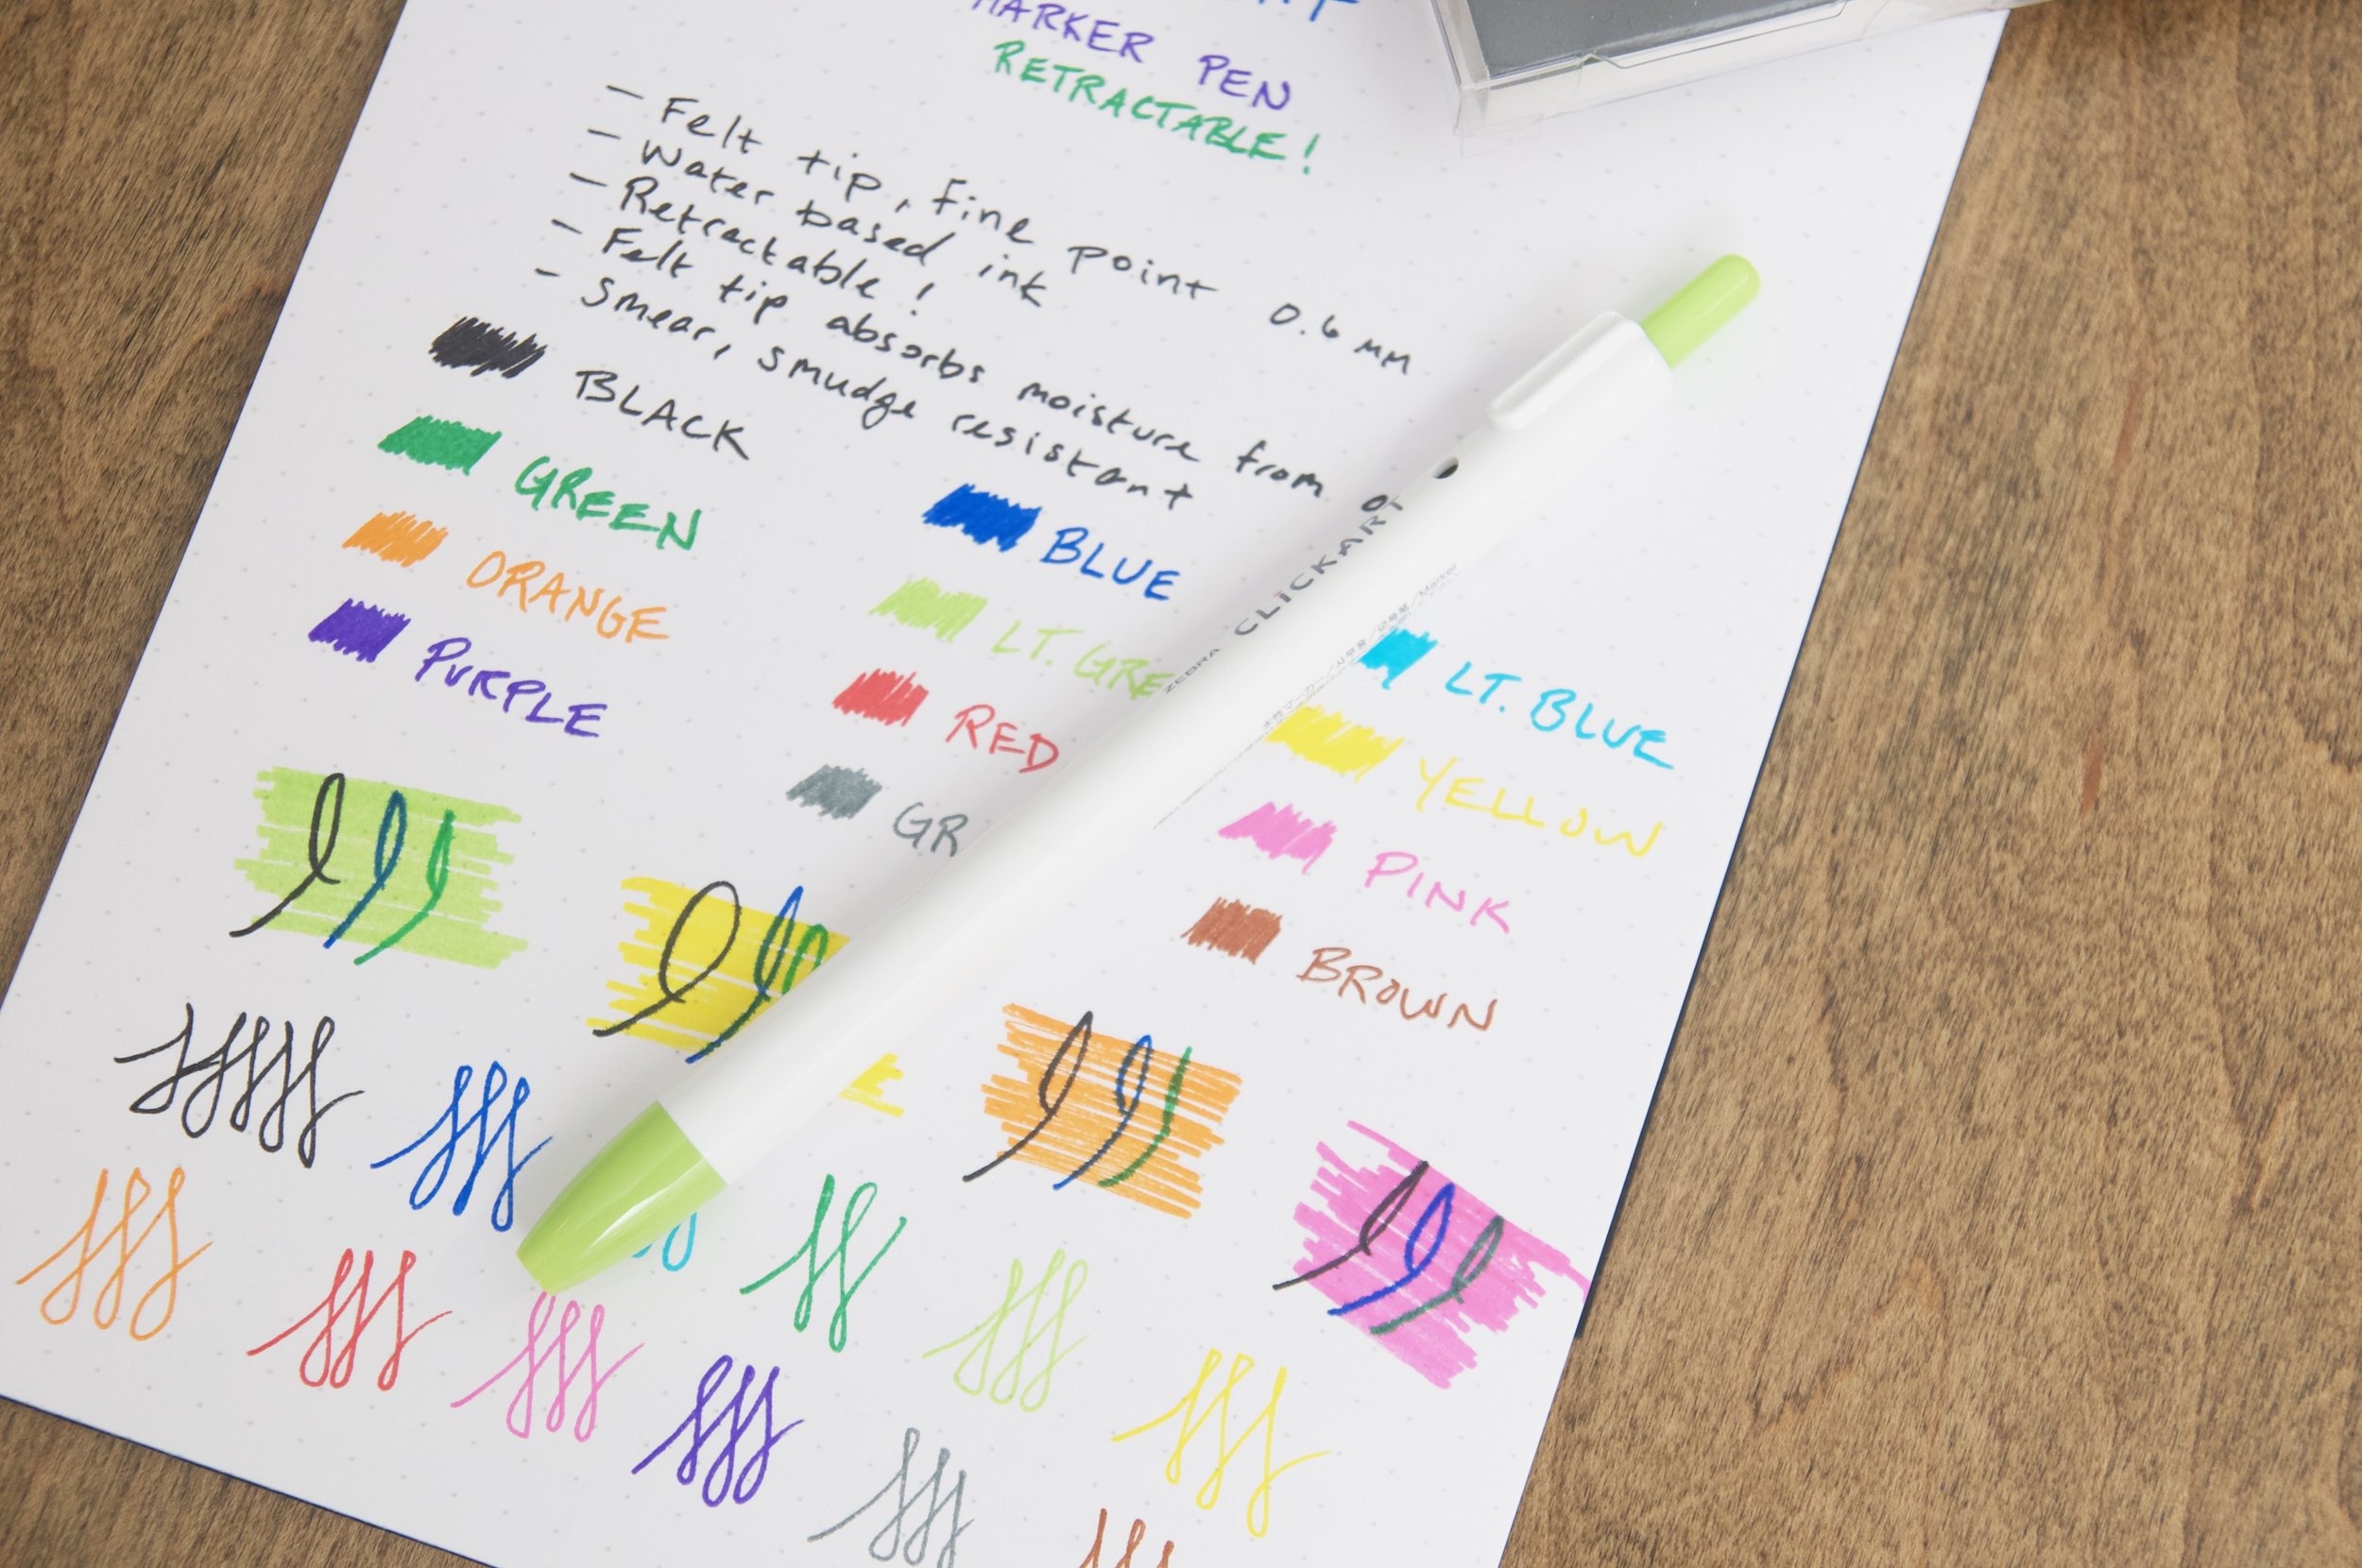 MARKER PEN
RETRACTABLE!
- Felt tip, fine point 0.6 mm
- Water based ink
- Retractable!
- Felt tip absorbs moisture from
- Smear, smudge resistant
BLACK
BLUE
LT. BLUE
GREEN
LT. GRE
YELLOW
ORANGE
RED
PINK
PURPLE
GR
BROWN
ZEBRA CLiCKART
Marker